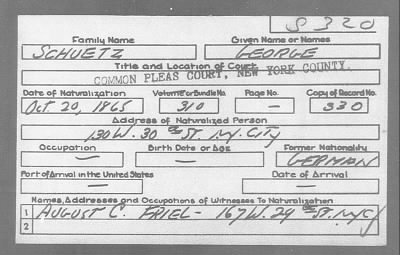 S 320
Family Name Given Name or Names
SCHUETZ GEORGE
Title and Location of Court
COMMON PLEAS COURT, NEW YORK COUNTY.
Date of Naturalization Volume or Bundle No. Page No. Copy of Record No.
Oct. 20, 1865 310 — 330
Address of Naturalized Person
130 W. 30 St. N.Y. CITY
Occupation Birth Date or Age Former Nationality
— — GERMAN
Port of Arrival in the United States Date of Arrival
— —
Names, Addresses and Occupations of Witnesses To Naturalization
1 AUGUST C. FRIEL - 167 W. 29 St. NYC
2